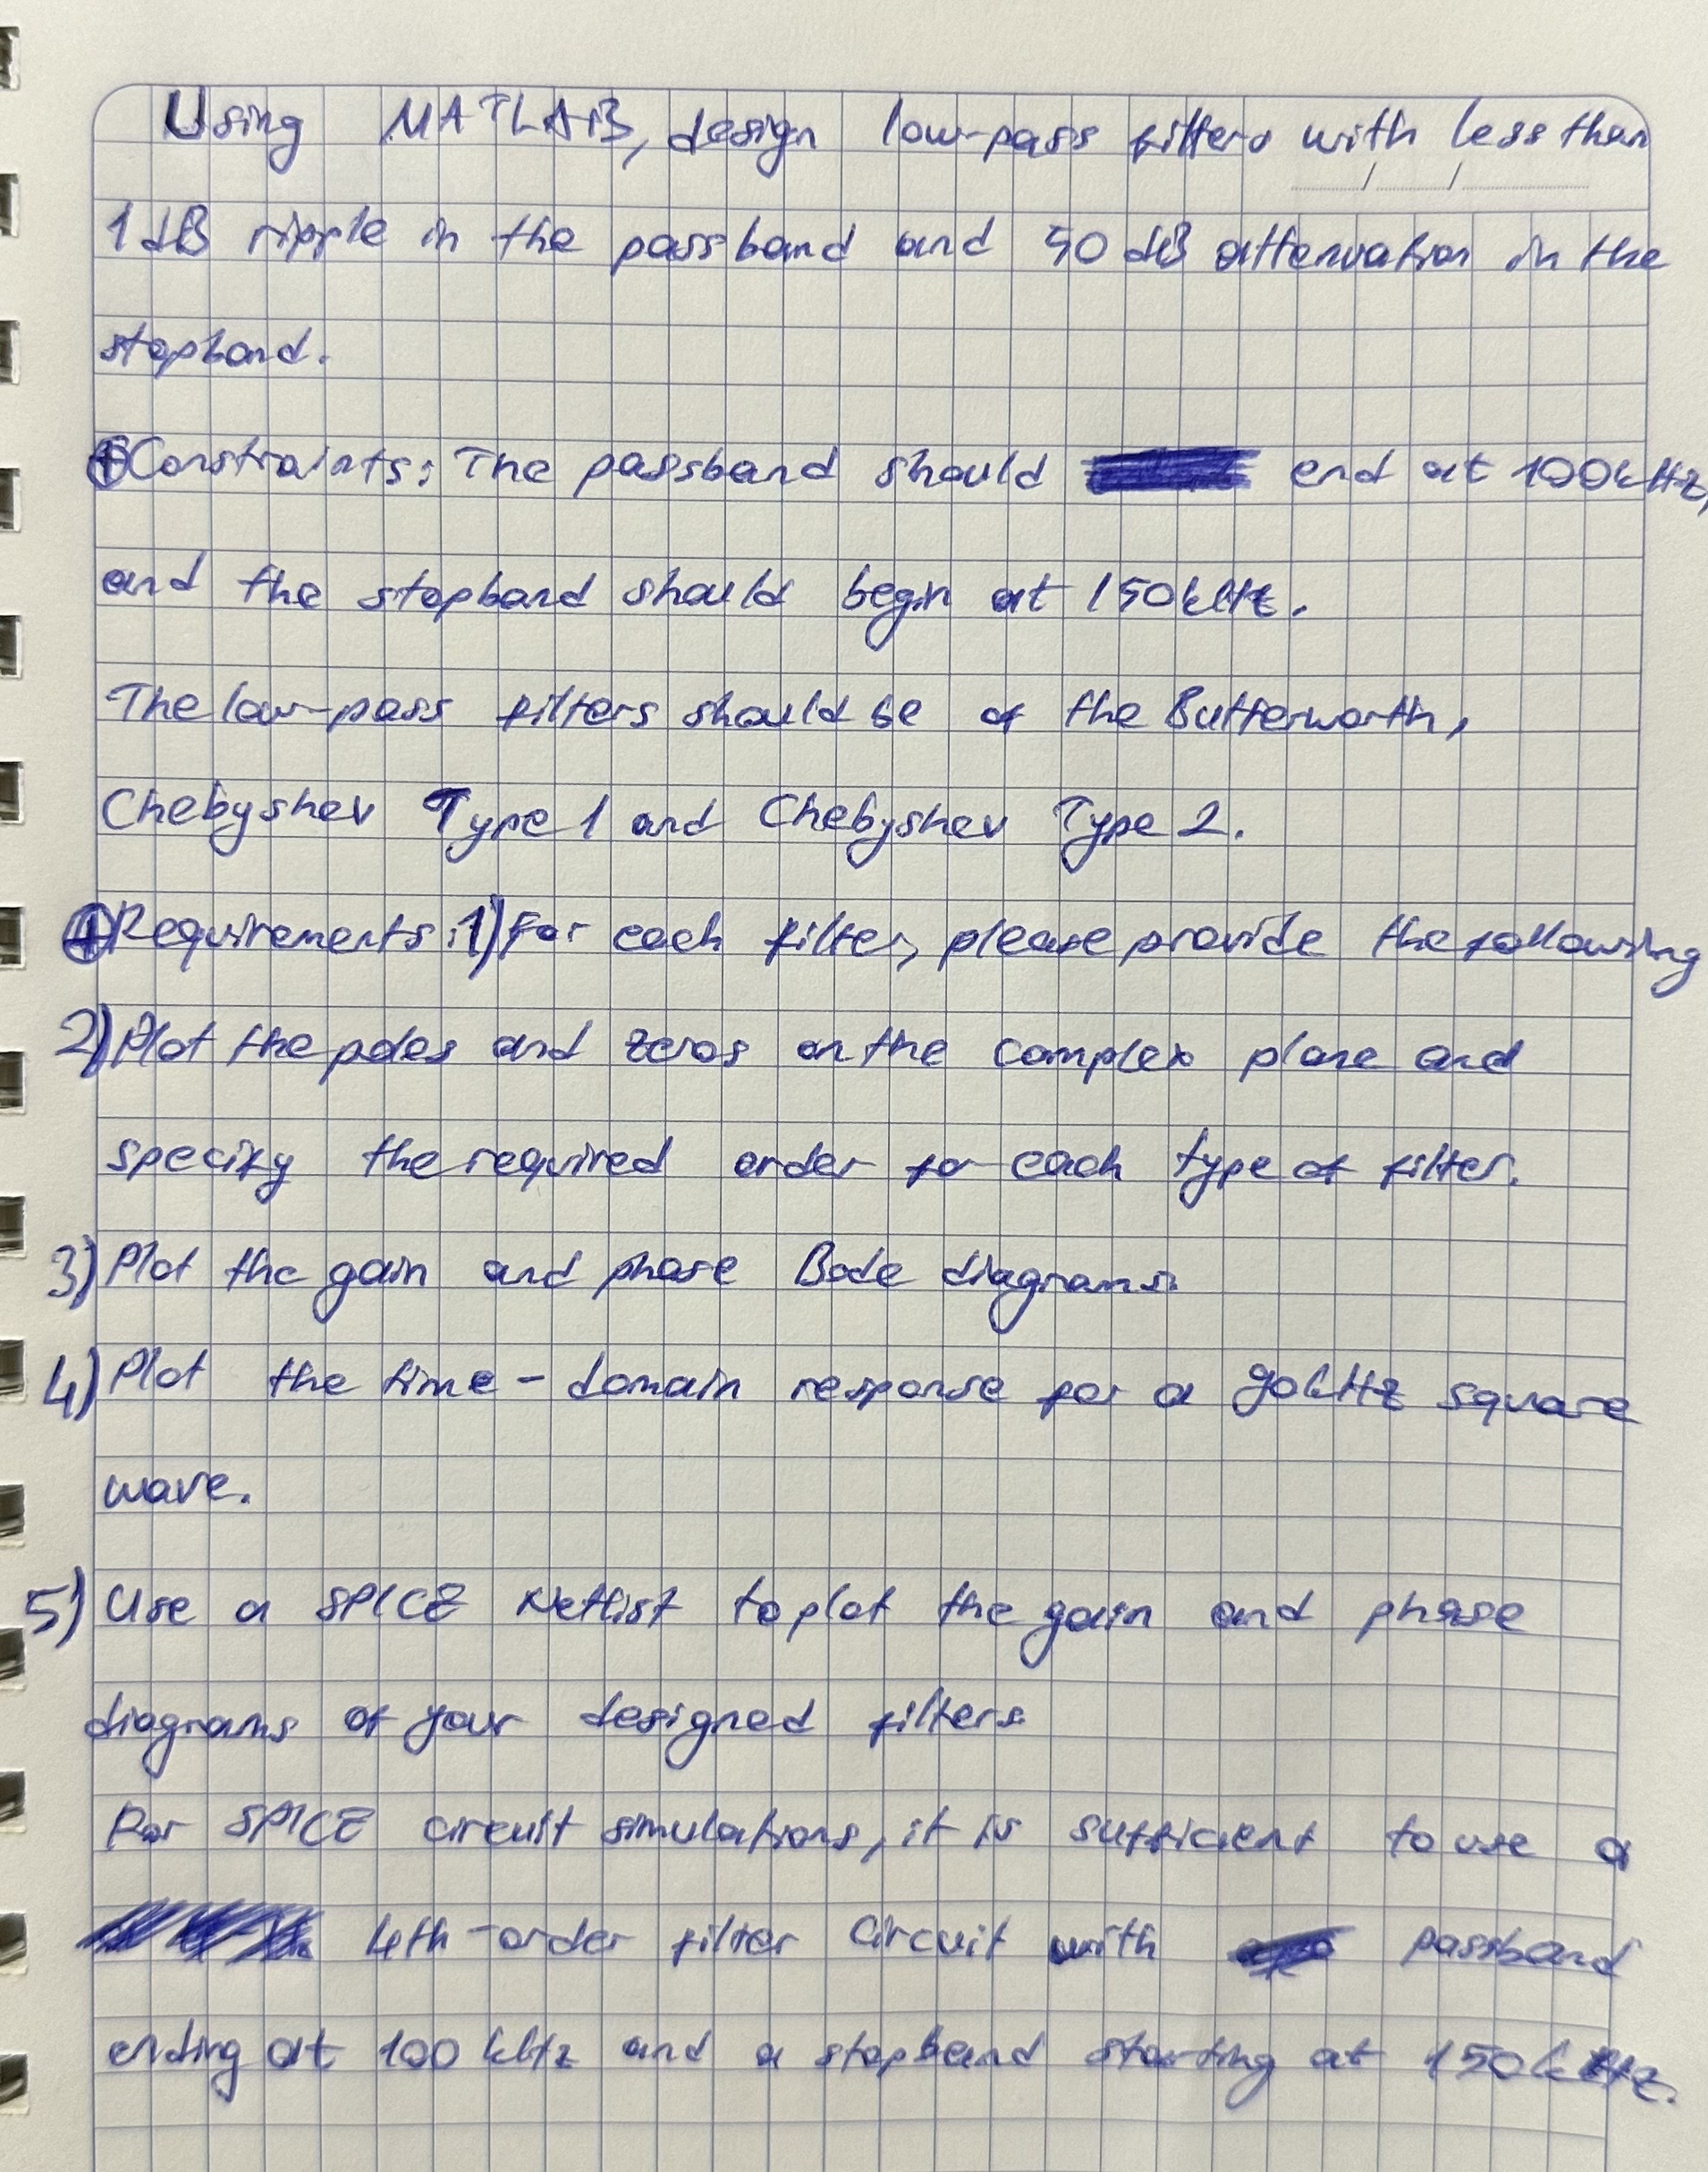 Using MATLAB, design low-pass filters with less than
1 dB ripple in the passband and 50 dB attenuation in the
stopband.
Constraints: The passband should end at 100kHz,
and the stopband should begin at 150kHz.
The low-pass filters should be of the Butterworth,
Chebyshev Type 1 and Chebyshev Type 2.
Requirements: 1) For each filter, please provide the following
2) Plot the poles and zeros on the complex plane and
specify the required order for each type of filter.
3) Plot the gain and phase Bode diagrams.
4) Plot the time-domain response for a 90kHz square
wave.
5) Use a SPICE Netlist to plot the gain and phase
diagrams of your designed filters
For SPICE circuit simulations, it is sufficient to use a
4th-order filter circuit with passband
ending at 100 kHz and a stopband starting at 150kHz.